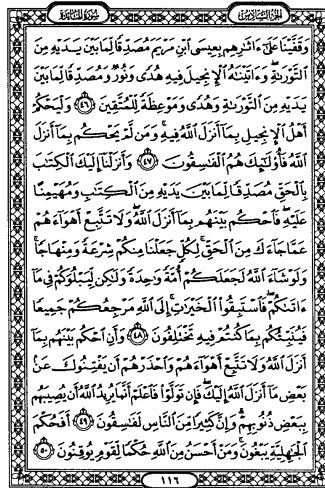 الجزء السادس
سورة المائدة
وَقَفَّيْنَا عَلَىٰٓ ءَاثَٰرِهِم بِعِيسَى ٱبْنِ مَرْيَمَ مُصَدِّقًا لِّمَا بَيْنَ يَدَيْهِ مِنَ
ٱلتَّوْرَىٰةِ وَءَاتَيْنَٰهُ ٱلْإِنجِيلَ فِيهِ هُدًى وَنُورٌ وَمُصَدِّقًا لِّمَا بَيْنَ
يَدَيْهِ مِنَ ٱلتَّوْرَىٰةِ وَهُدًى وَمَوْعِظَةً لِّلْمُتَّقِينَ ٤٦ وَلْيَحْكُمْ
أَهْلُ ٱلْإِنجِيلِ بِمَآ أَنزَلَ ٱللَّهُ فِيهِ وَمَن لَّمْ يَحْكُم بِمَآ أَنزَلَ
ٱللَّهُ فَأُو۟لَٰٓئِكَ هُمُ ٱلْفَٰسِقُونَ ٤٧ وَأَنزَلْنَآ إِلَيْكَ ٱلْكِتَٰبَ
بِٱلْحَقِّ مُصَدِّقًا لِّمَا بَيْنَ يَدَيْهِ مِنَ ٱلْكِتَٰبِ وَمُهَيْمِنًا
عَلَيْهِ فَٱحْكُم بَيْنَهُم بِمَآ أَنزَلَ ٱللَّهُ وَلَا تَتَّبِعْ أَهْوَآءَهُمْ
عَمَّا جَآءَكَ مِنَ ٱلْحَقِّ لِكُلٍّ جَعَلْنَا مِنكُمْ شِرْعَةً وَمِنْهَاجًا
وَلَوْ شَآءَ ٱللَّهُ لَجَعَلَكُمْ أُمَّةً وَٰحِدَةً وَلَٰكِن لِّيَبْلُوَكُمْ فِى مَآ
ءَاتَىٰكُمْ فَٱسْتَبِقُوا۟ ٱلْخَيْرَٰتِ إِلَى ٱللَّهِ مَرْجِعُكُمْ جَمِيعًا
فَيُنَبِّئُكُم بِمَا كُنتُمْ فِيهِ تَخْتَلِفُونَ ٤٨ وَأَنِ ٱحْكُم بَيْنَهُم بِمَآ
أَنزَلَ ٱللَّهُ وَلَا تَتَّبِعْ أَهْوَآءَهُمْ وَٱحْذَرْهُمْ أَن يَفْتِنُوكَ عَنۢ
بَعْضِ مَآ أَنزَلَ ٱللَّهُ إِلَيْكَ فَإِن تَوَلَّوْا۟ فَٱعْلَمْ أَنَّمَا يُرِيدُ ٱللَّهُ أَن يُصِيبَهُم
بِبَعْضِ ذُنُوبِهِمْ وَإِنَّ كَثِيرًا مِّنَ ٱلنَّاسِ لَفَٰسِقُونَ ٤٩ أَفَحُكْمَ
ٱلْجَٰهِلِيَّةِ يَبْغُونَ وَمَنْ أَحْسَنُ مِنَ ٱللَّهِ حُكْمًا لِّقَوْمٍ يُوقِنُونَ ٥٠
١١٦